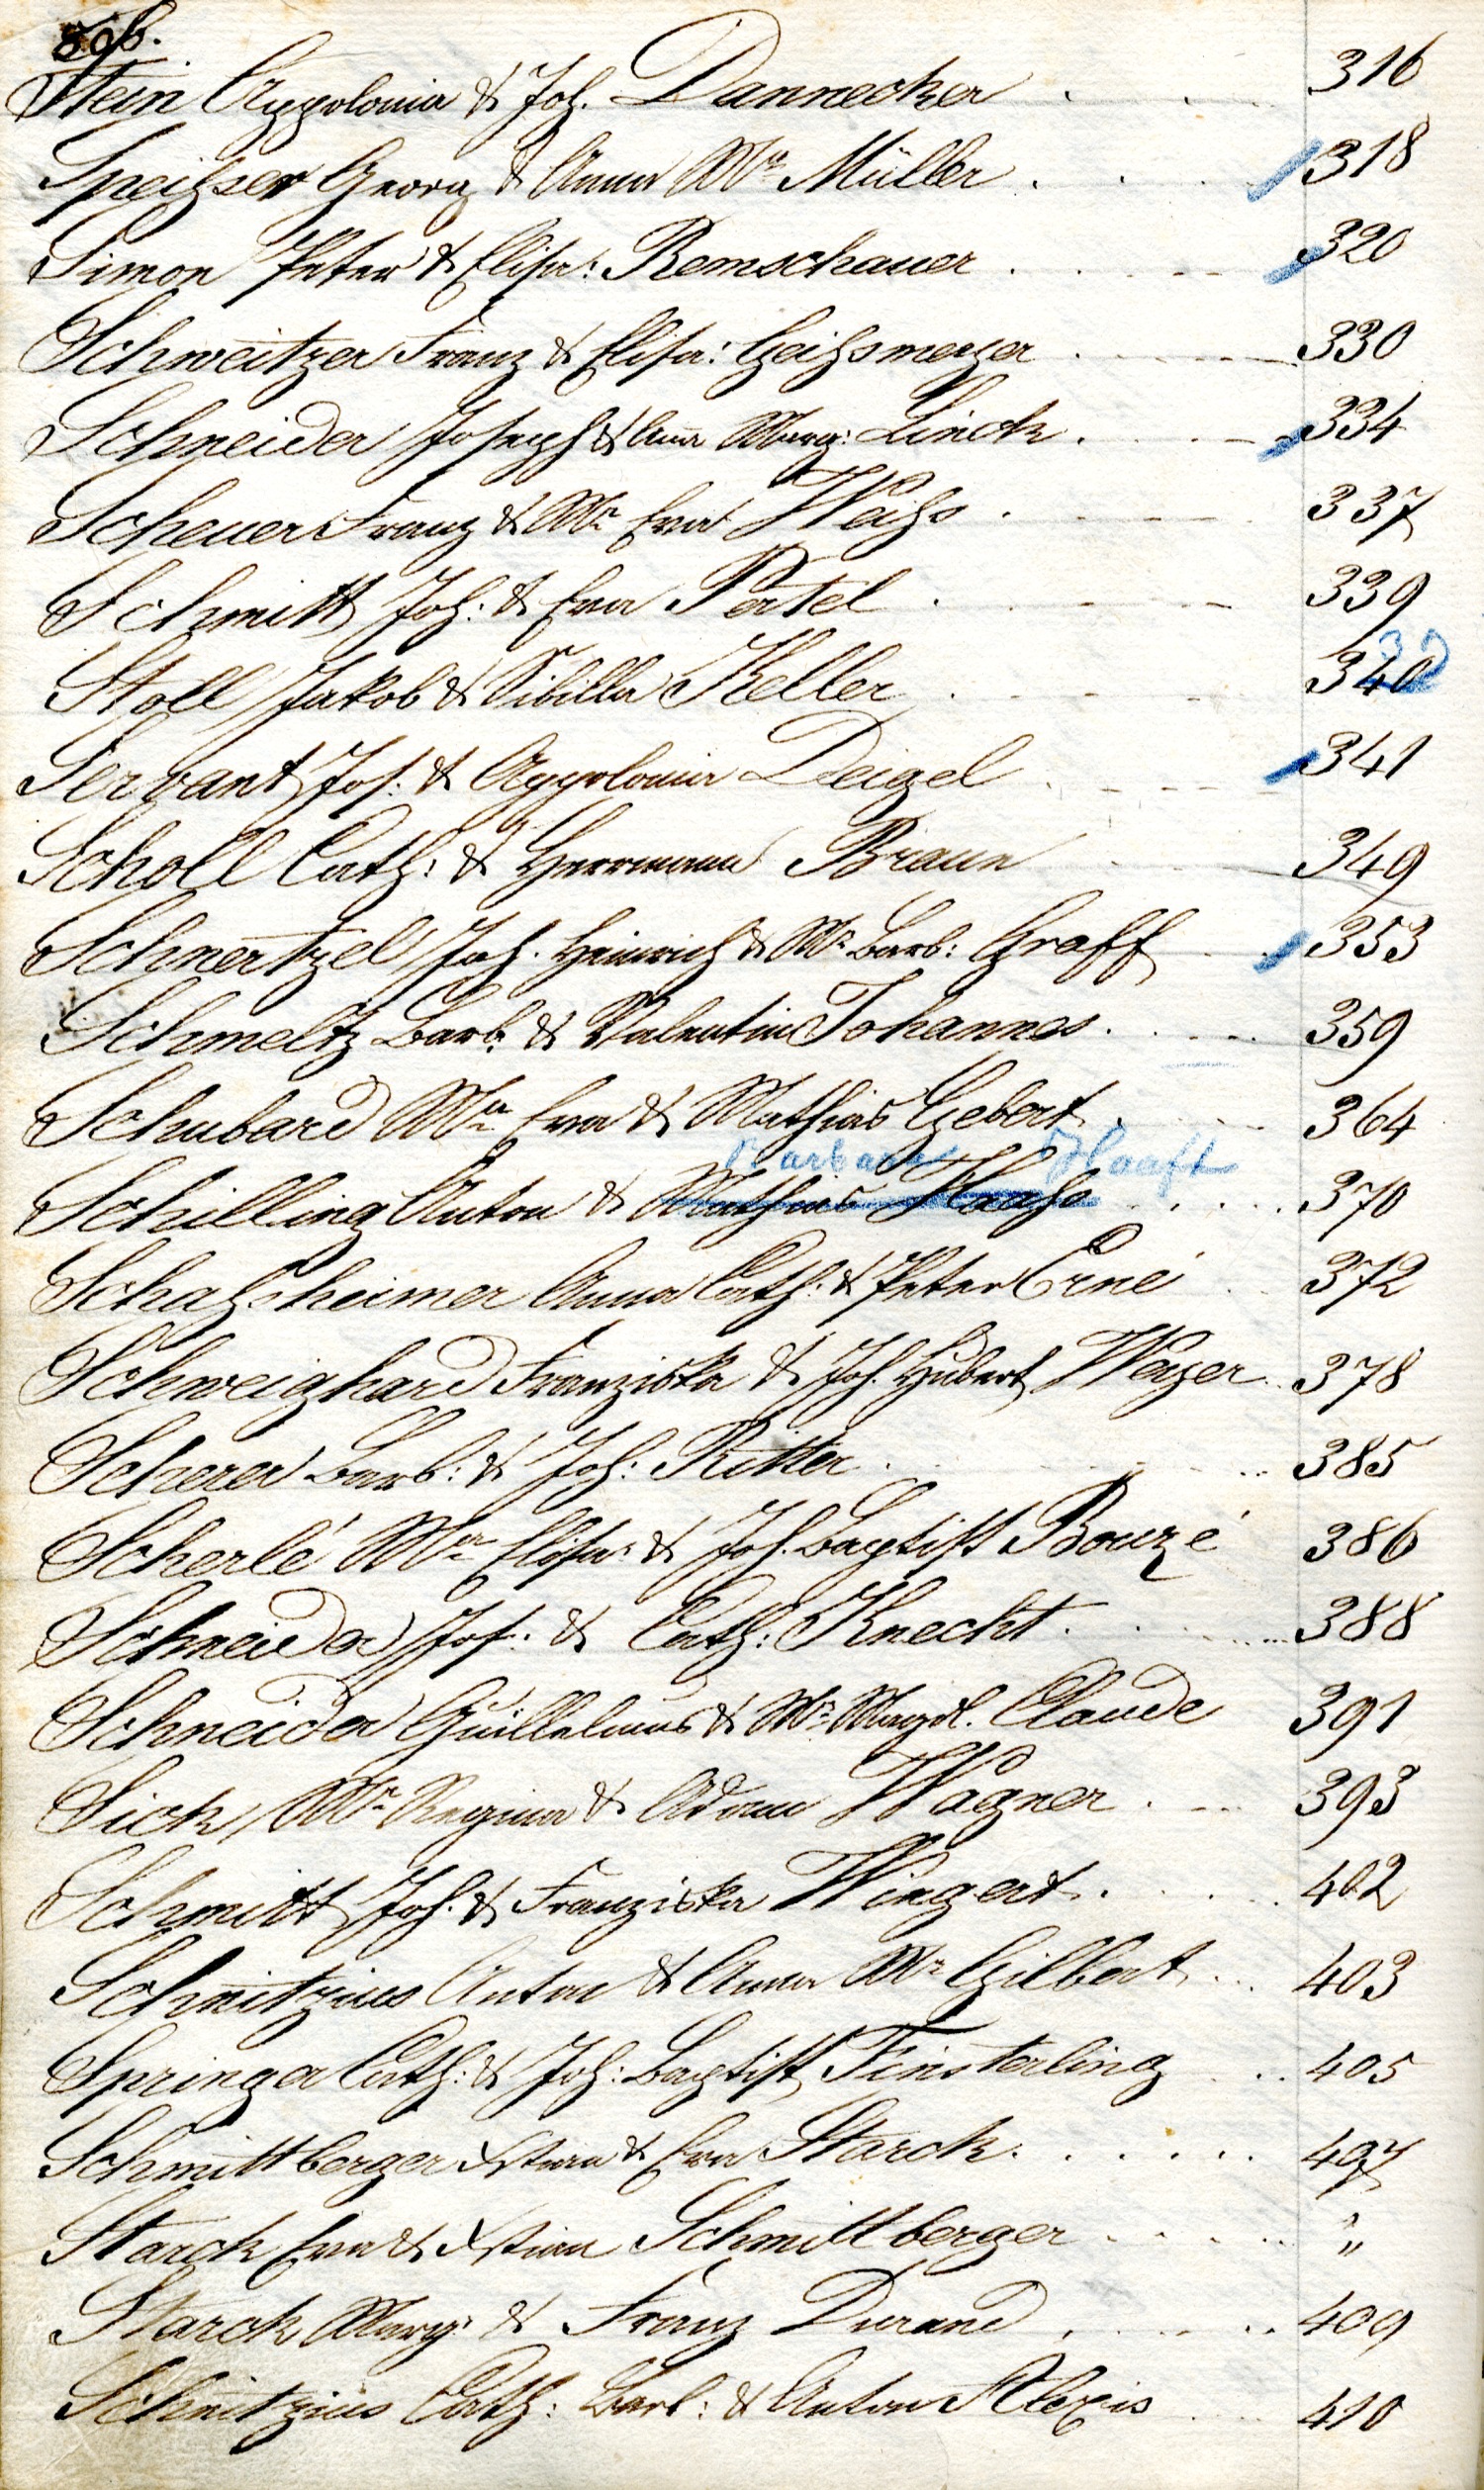 506.
Stein Appolonia & Joh. Dannecker . . . 316
Speihser Georg & Anna Ma Müller . . . 318
Simon Peter & Elisa: Remschauer . . . 320
Schweitzer Franz & Elisa: Geihsmeyer . . . 330
Schneider Joseph & Anna Marg: Linck . . . 334
Scheuer Franz & Ma Eva Weihs . . . 337
Schmitt Joh: & Eva Pertel . . . 339
Stoll Jakob & Sibilla Keller . . . 340
Servant Jos: & Appolonia Deigel . . . 341
Scholl Cath: & Herrmann Braun 349
Schnertzel Joh. Heinrich & Ma Barb: Graff . . 353
Schmeltz Barb. & Valentin Johannes . . . 359
Schubard Ma Eva & Mathias Gebert . . . 364
Barbara Haaft
Schilling Anton & Mathias Haahs . . . 370
Schahsheimer Anna Cath: & Peter Erné . . 372
Schweighard Franziska & Joh. Hubert Weyer . . 378
Scherer Barb: & Joh: Ritter . . . 385
Scherlé Ma Elisa: & Joh. Baptist Bouzé 386
Schneider Jos: & Cath: Knecht . . . 388
Schneider Guillelmus & Ma Magd. Claude 391
Sick Ma Regina & Adam Wagner . . . 393
Schmitt Joh. & Franziska Wingert . . . 402
Schnitzius Anton & Anna Ma Gilbert . . 403
Springer Cath: & Joh: Baptist Finsterling . . 405
Schmittberger Xstian & Eva Starck . . . 407
Starck Eva & Xstian Schmittberger . . . "
Starck Marg: & Franz Durand . . . 409
Schnitzius Cath: Barb: & Anton Alexis . . 410